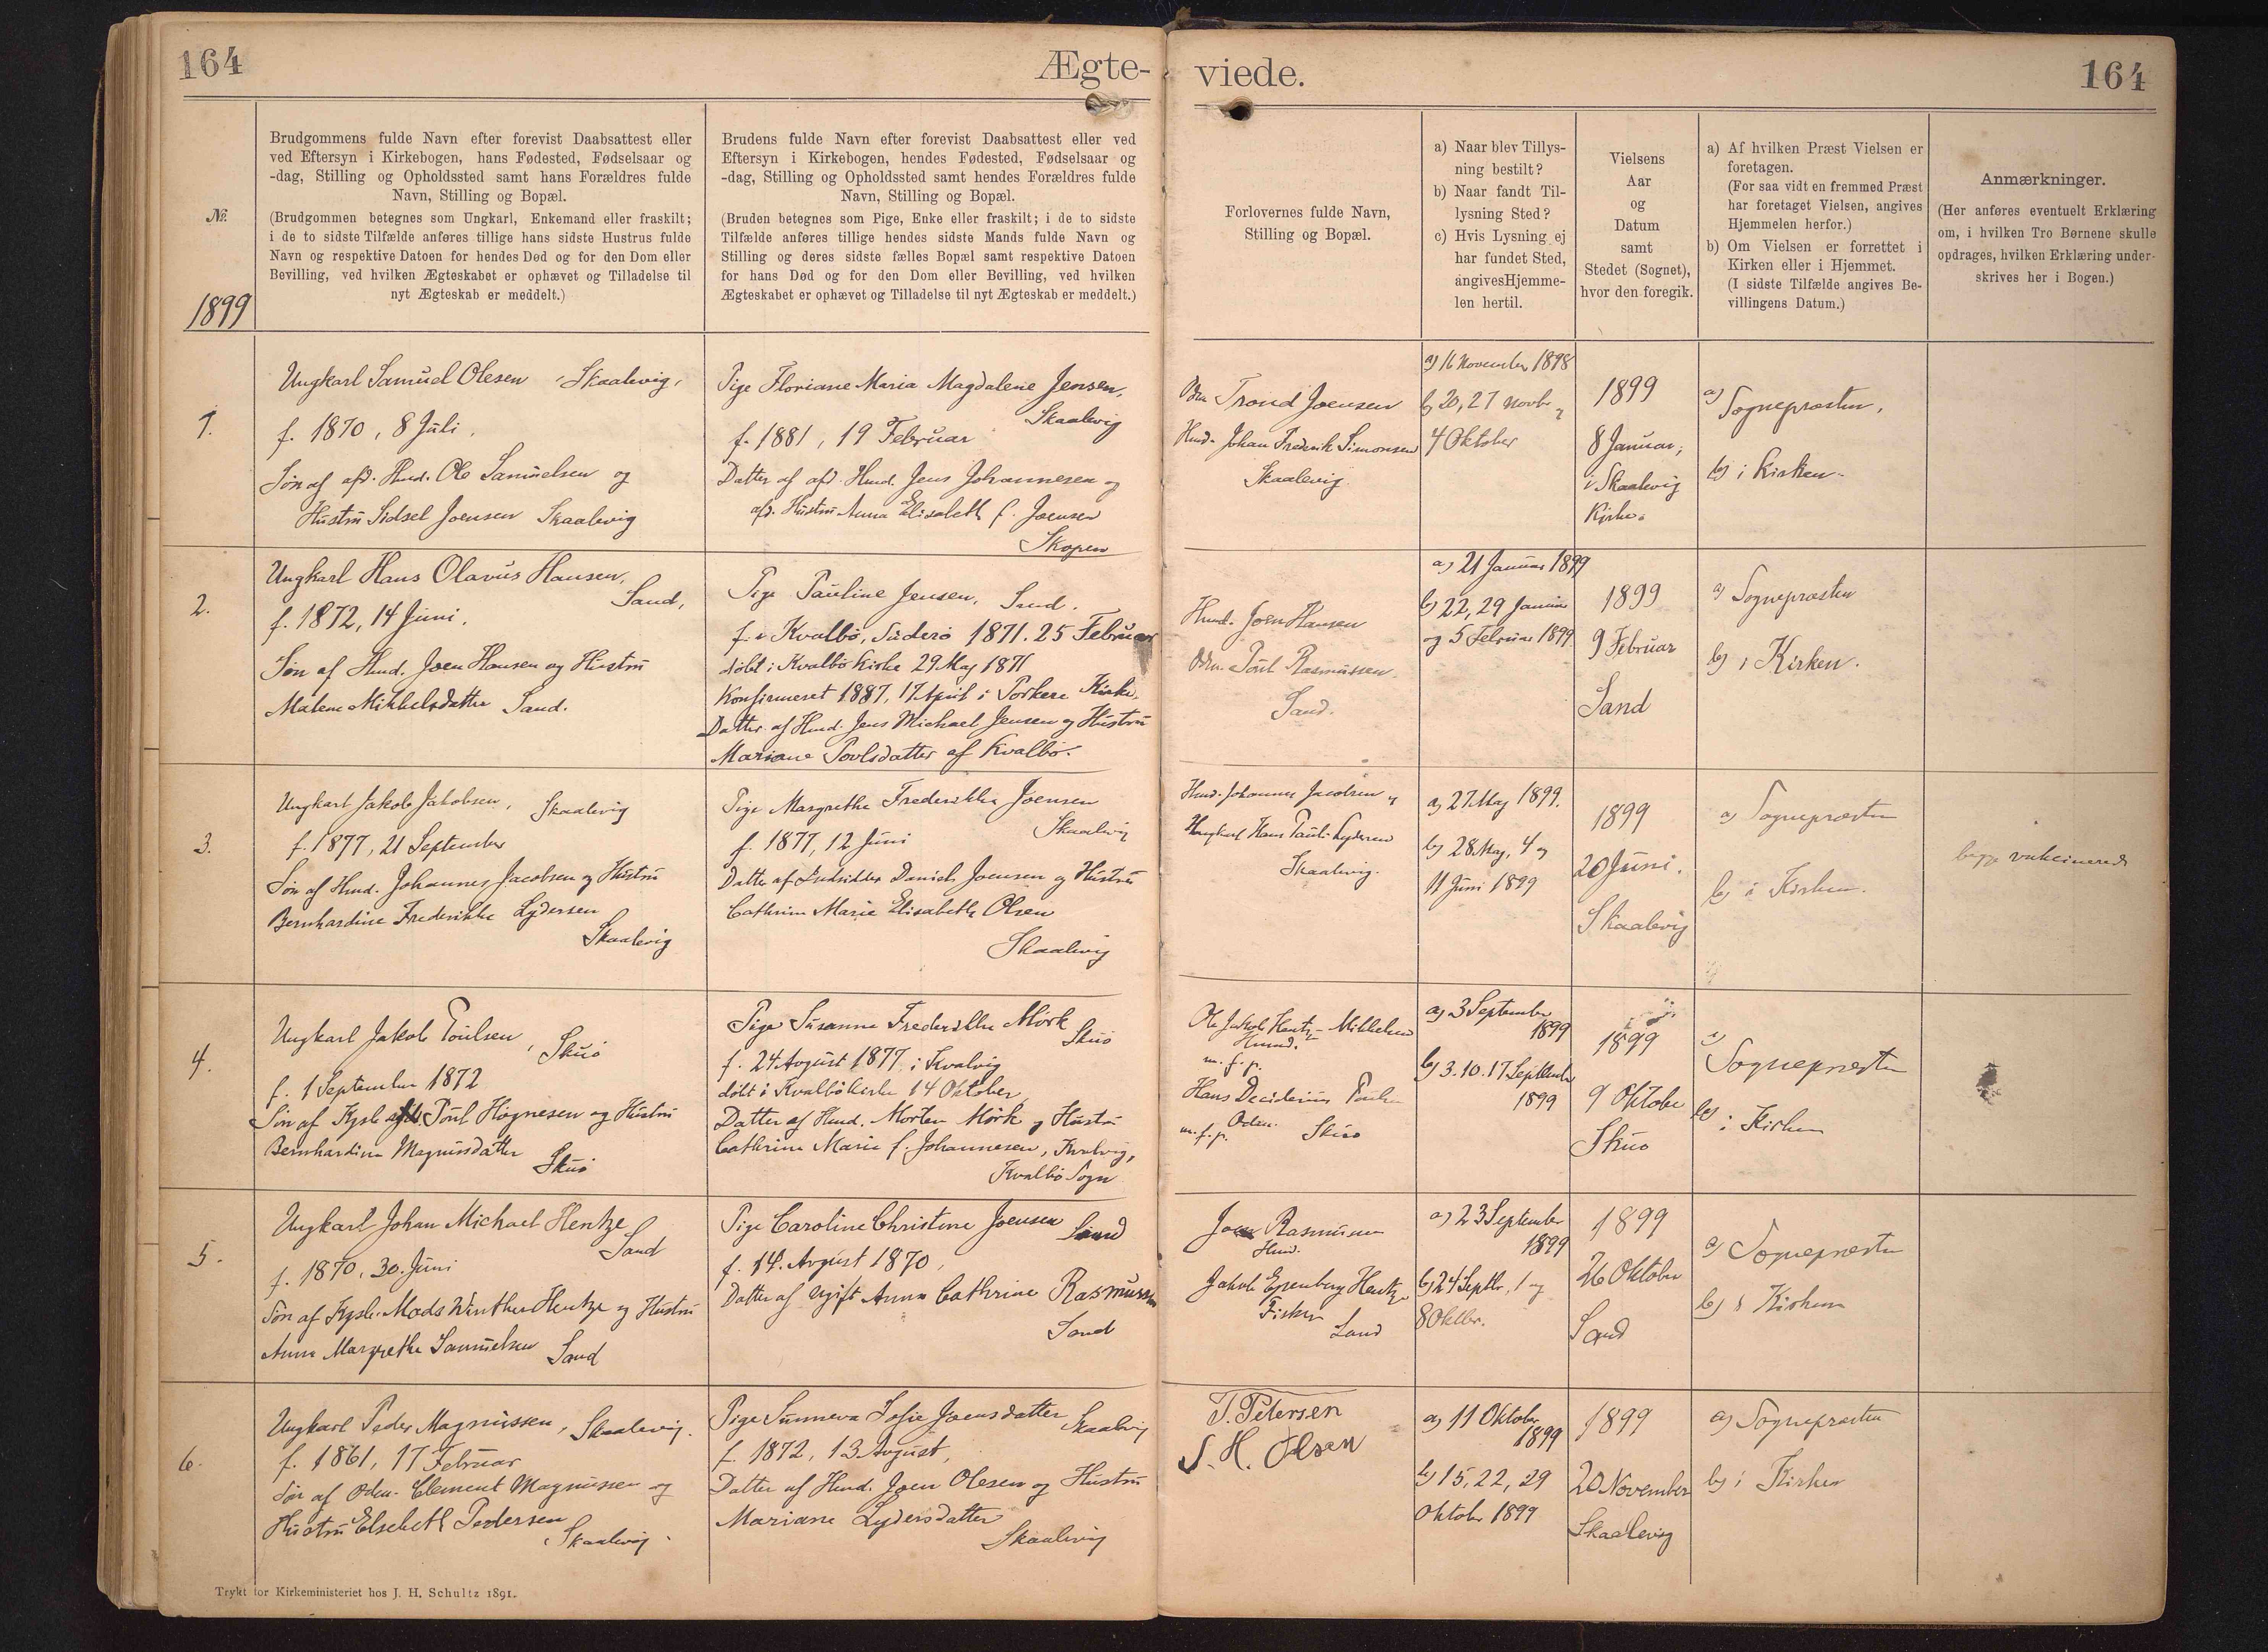 164
Ægte-
viede.
164
№.
1899
Brudgommens fulde Navn efter forevist Daabsattest eller
ved Eftersyn i Kirkebogen, hans Fødested, Fødselsaar og
-dag, Stilling og Opholdssted samt hans Forældres fulde
Navn, Stilling og Bopæl.
(Brudgommen betegnes som Ungkarl, Enkemand eller fraskilt;
i de to sidste Tilfælde anføres tillige hans sidste Hustrus fulde
Navn og respektive Datoen for hendes Død og for den Dom eller
Bevilling, ved hvilken Ægteskabet er ophævet og Tilladelse til
nyt Ægteskab er meddelt.)
Brudens fulde Navn efter forevist Daabsattest eller ved
Eftersyn i Kirkebogen, hendes Fødested, Fødselsaar og
-dag, Stilling og Opholdssted samt hendes Forældres fulde
Navn, Stilling og Bopæl.
(Bruden betegnes som Pige, Enke eller fraskilt; i de to sidste
Tilfælde anføres tillige hendes sidste Mands fulde Navn og
Stilling og deres sidste fælles Bopæl samt respektive Datoen
for hans Død og for den Dom eller Bevilling, ved hvilken
Ægteskabet er ophævet og Tilladelse til nyt Ægteskab er meddelt.)
Forlovernes fulde Navn,
Stilling og Bopæl.
a) Naar blev Tillys-
ning bestilt?
b) Naar fandt Til-
lysning Sted?
c) Hvis Lysning ej
har fundet Sted,
angives Hjemme-
len hertil.
Vielsens
Aar
og
Datum
samt
Stedet (Sognet),
hvor den foregik.
a) Af hvilken Præst Vielsen er
foretagen.
(For saa vidt en fremmed Præst
har foretaget Vielsen, angives
Hjemmelen herfor.)
b) Om Vielsen er forrettet i
Kirken eller i Hjemmet.
(I sidste Tilfælde angives Be-
villingens Datum.)
Anmærkninger.
(Her anføres eventuelt Erklæring
om, i hvilken Tro Børnene skulle
opdrages, hvilken Erklæring under-
skrives her i Bogen.)
1.
Ungkarl Samuel Olesen Skaalevig,
f. 1870, 8 Juli.
Søn af afd. Hmd. Ole Samuelsen og
Hustru Sidsel Joensen Skaalevig
Pige Floriane Maria Magdalene Jensen,
Skaalevig
f. 1881, 19 Februar
Datter af afd. Hmd. Jens Johannesen og
afd. Hustru Anna Elisabeth f. Joensen
Skopen
Odm. Trond Joensen
Hmd. Johan Fredrik Simonsen
Skaalevig.
a) 16 November 1898
b) 20, 27 Novbr. og
4 Oktober
1899
8 Januar,
i Skaalevig
Kirke.
a) Sognepræsten.
b) i Kirken.
2.
Ungkarl Hans Olavus Hansen,
Sand,
f. 1872, 14 Juni.
Søn af Hmd. Joen Hansen og Hustru
Malene Mikkelsdatter Sand.
Pige Pauline Jensen, Sand.
f. i Kvalbø, Suderø 1871. 25 Februar
døbt i Kvalbø Kirke 29 Maj 1871
Konfirmeret 1887, 17 April i Porkere Kirke.
Datter af Hmd. Jens Michael Jensen og Hustru
Mariane Povlsdatter af Kvalbø.
Hmd. Joen Hansen
Odm. Poul Rasmussen.
Sand.
a) 21 Januar 1899
b) 22, 29 Januar
og 5 Februar 1899.
1899
9 Februar
Sand
a) Sognepræsten
b) i Kirken.
3.
Ungkarl Jakob Jakobsen, Skaalevig
f. 1877, 21 September
Søn af Hmd. Johannes Jacobsen og Hustru
Bernhardine Frederikke Lydersen
Skaalevig
Pige Margrethe Frederikke Joensen
Skaalevig
f. 1877, 12 Juni
Datter af Indsidder Daniel Joensen og Hustru
Cathrine Marie Elisabeth Olsen
Skaalevig
Hmd. Johannes Jacobsen og
Ungkarl Hans Pauli Lydersen
Skaalevig.
a) 27 Maj 1899.
b) 28 Maj, 4 og
11 Juni 1899
1899
20 Juni.
Skaalevig
a) Sognepræsten
b) i Kirken.
begge vakcinerede
4.
Ungkarl Jakob Poulsen, Skuø
f. 1 September 1872
Søn af Poul Høgnesen og Hustru
Bernhardine Magnusdatter
Skuø
Pige Susanne Frederikke Mørk
Skuø
f. 24 August 1877 i Kvalvig
døbt i Kvalbø Kirke 14 Oktober
Datter af Hmd. Morten Mørk og Hustru
Cathrine Marie f. Johannesen, Kvalvig,
Kvalbø Sogn
Ole Jakob Hentze Mikkelsen
Hmd.
m. f. p.
Hans Deciderius
Odm.
m. f. p. Skuø
a) 3 September
1899
b) 3. 10. 17 September
1899
1899
9 Oktober
Skuø
a) Sognepræsten
b) i Kirken
5.
Ungkarl Johan Michael Hentze
Sand
f. 1870, 30. Juni
Søn af Mads Winther Hentze og Hustru
Anna Margrethe Samuelsen
Sand
Pige Caroline Christine Joensen Sand
f. 14. August 1870,
Datter af Ugift Anna Cathrine Rasmussen
Sand
Joen Rasmussen
Hmd.
Jakob Hentze
Fisker
Sand
a) 23 September
1899
b) 24 Septbr, 1 og
8 Oktbr.
1899
26 Oktober
Sand
a) Sognepræsten
b) i Kirken
6.
Ungkarl Peder Magnussen, Skaalevig.
f. 1861, 17 Februar
Søn af Odm. Clement Magnussen og
Hustru Elsebeth Pedersen
Skaalevig.
Pige Sunneva Sofie Joensdatter
Skaalevig
f. 1872, 13 August,
Datter af Hmd. Joen Olesen og Hustru
Mariane Lydersdatter
Skaalevig
T. Petersen
S. H. Olsen
a) 11 Oktober
1899
b) 15, 22, 29
Oktober 1899
1899
20 November
Skaalevig
a) Sognepræsten
b) i Kirken
Trykt for Kirkeministeriet hos J. H. Schultz 1891.